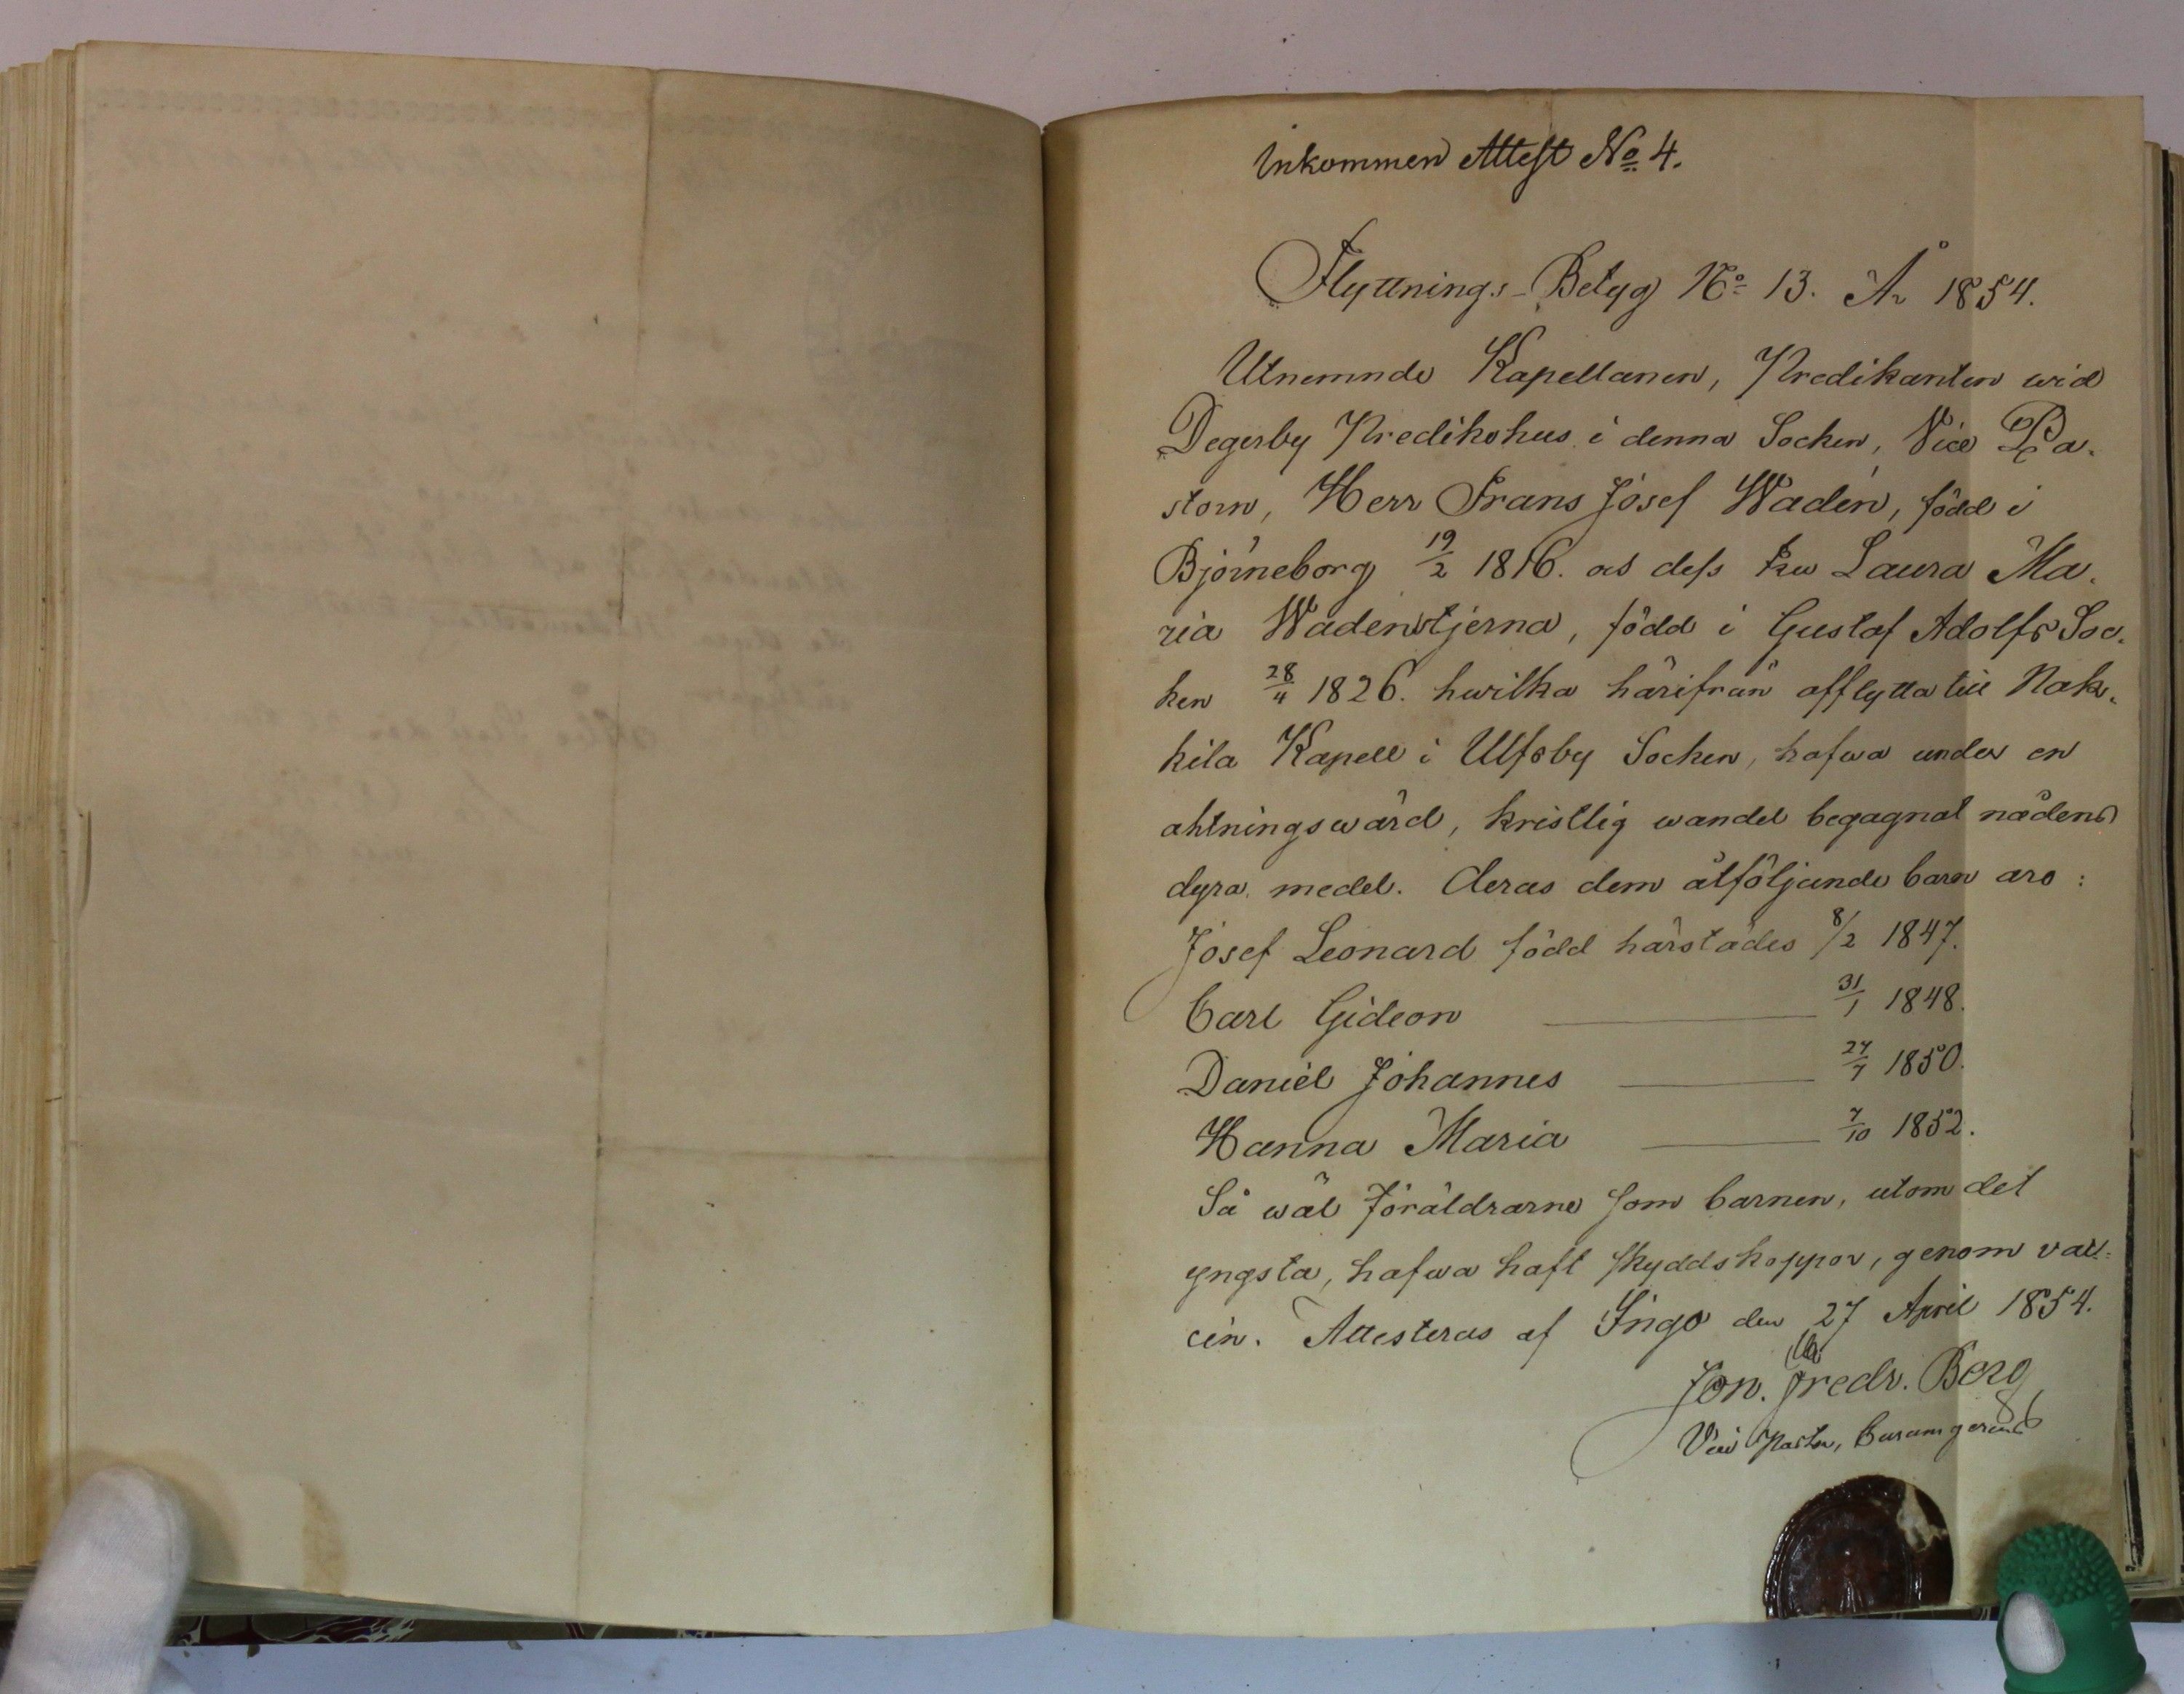 Inkommen Attest No 4.
Flyttnings-Betyg No 13. År 1854.
Utnemnde Kapellanen, Predikanten wid
Degerby Predikohus i denna Socken, Vice Pa-
storn, Herr Frans Josef Wadén, född i
Björneborg 19/2 1816. oc dess Fru Laura Ma-
ria Wadenstjerna, född i Gustaf Adolfs Soc-
ken 28/4 1826. hwilka härifrån afflytta till Nak-
kila Kapell i Ulfsby Socken, hafwa under en
aktningswärd, kristlig wandel begagnat nådens
dyra medel. Deras dem åtföljande barn äro:
Josef Leonard född härstädes 8/2 1847.
Carl Gideon — 31/1 1848.
Daniel Johannes — 27/7 1850.
Hanna Maria — 7/10 1852.
Så wäl föräldrarne som barnen, utom det
yngsta, hafwa haft skyddskoppor, genom vac-
cin. Attesteras af Ingo den 27 April 1854.
Jon. Fredr. Berg
Vice Pastor,